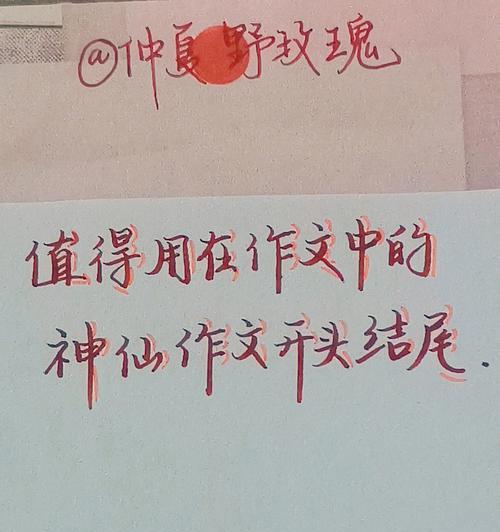 @仲夏野玫瑰
值得用在作文中的
神仙作文开头结尾.